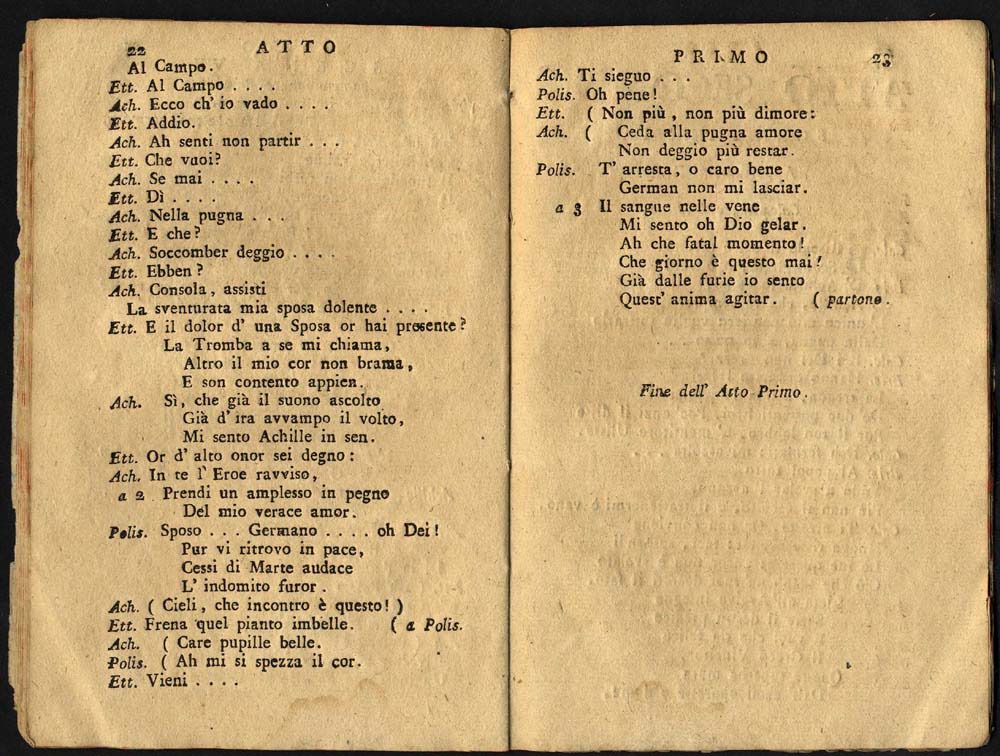 22 ATTO
Al Campo.
Ett. Al Campo . . . .
Ach. Ecco ch' io vado . . . .
Ett. Addio.
Ach. Ah senti non partir . . .
Ett. Che vuoi?
Ach. Se mai . . . .
Ett. Dì . . . .
Ach. Nella pugna . . .
Ett. E che?
Ach. Soccomber deggio . . . .
Ett. Ebben?
Ach. Consola, assisti
La sventurata mia sposa dolente . . . .
Ett. E il dolor d' una Sposa or hai presente?
La Tromba a se mi chiama,
Altro il mio cor non brama,
E son contento appien.
Ach. Sì, che già il suono ascolto
Già d' ira avvampo il volto,
Mi sento Achille in sen.
Ett. Or d' alto onor sei degno:
Ach. In te l' Eroe ravviso,
a 2 Prendi un amplesso in pegno
Del mio verace amor.
Polis. Sposo . . . Germano . . . . oh Dei!
Pur vi ritrovo in pace,
Cessi di Marte audace
L' indomito furor.
Ach. ( Cieli, che incontro è questo! )
Ett. Frena quel pianto imbelle. ( a Polis.
Ach. ( Care pupille belle.
Polis. ( Ah mi si spezza il cor.
Ett. Vieni . . . .
PRIMO 23
Ach. Ti sieguo . . .
Polis. Oh pene!
Ett. ( Non più, non più dimore:
Ach. ( Ceda alla pugna amore
Non deggio più restar.
Polis. T' arresta, o caro bene
German non mi lasciar.
a 3 Il sangue nelle vene
Mi sento oh Dio gelar.
Ah che fatal momento!
Che giorno è questo mai!
Già dalle furie io sento
Quest' anima agitar. ( partono.
Fine dell' Atto Primo.